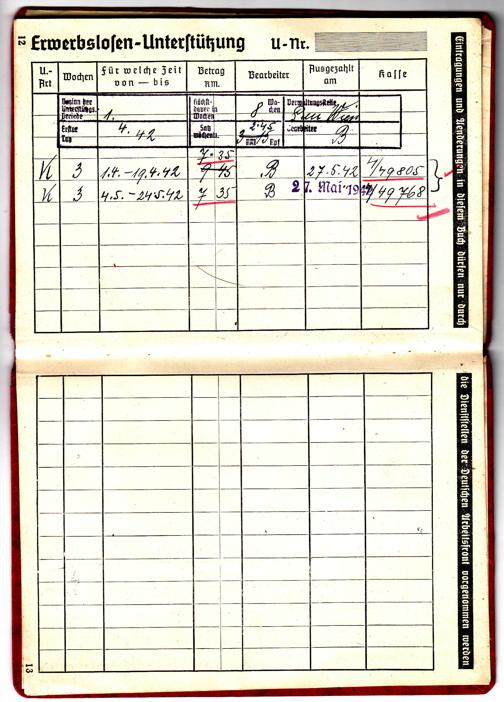 12
Erwerbslosen-Unterstützung U-Nr.
U.-Art Wochen Für welche Zeit von — bis Betrag RM. Bearbeiter Ausgezahlt am Kasse
Beginn der Unterstützungsperiode 1. Höchstdauer in Wochen 8 Wochen Verwaltungsstelle
Erster Tag 4. 42 Satz wöchentl. 2.45 Bearbeiter B
7.35
K 3 1.4.-19.4.42 9 45 B 27.5.42 4/49805
K 3 4.5.-24.5.42 7 35 B 27. Mai 1942 4/49768
Eintragungen und Aenderungen in diesem Buch dürfen nur durch
die Dienststellen der Deutschen Arbeitsfront vorgenommen werden
13